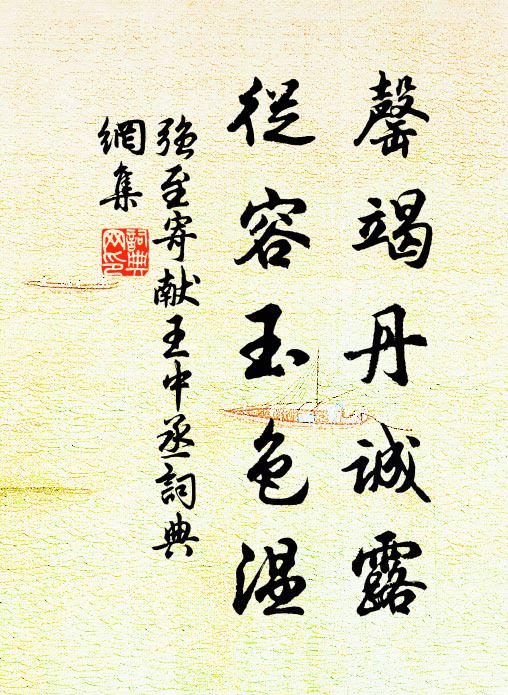 罄竭丹誠露
從容玉色溫
強至寄献王中丞詞典
網集
詞典網印